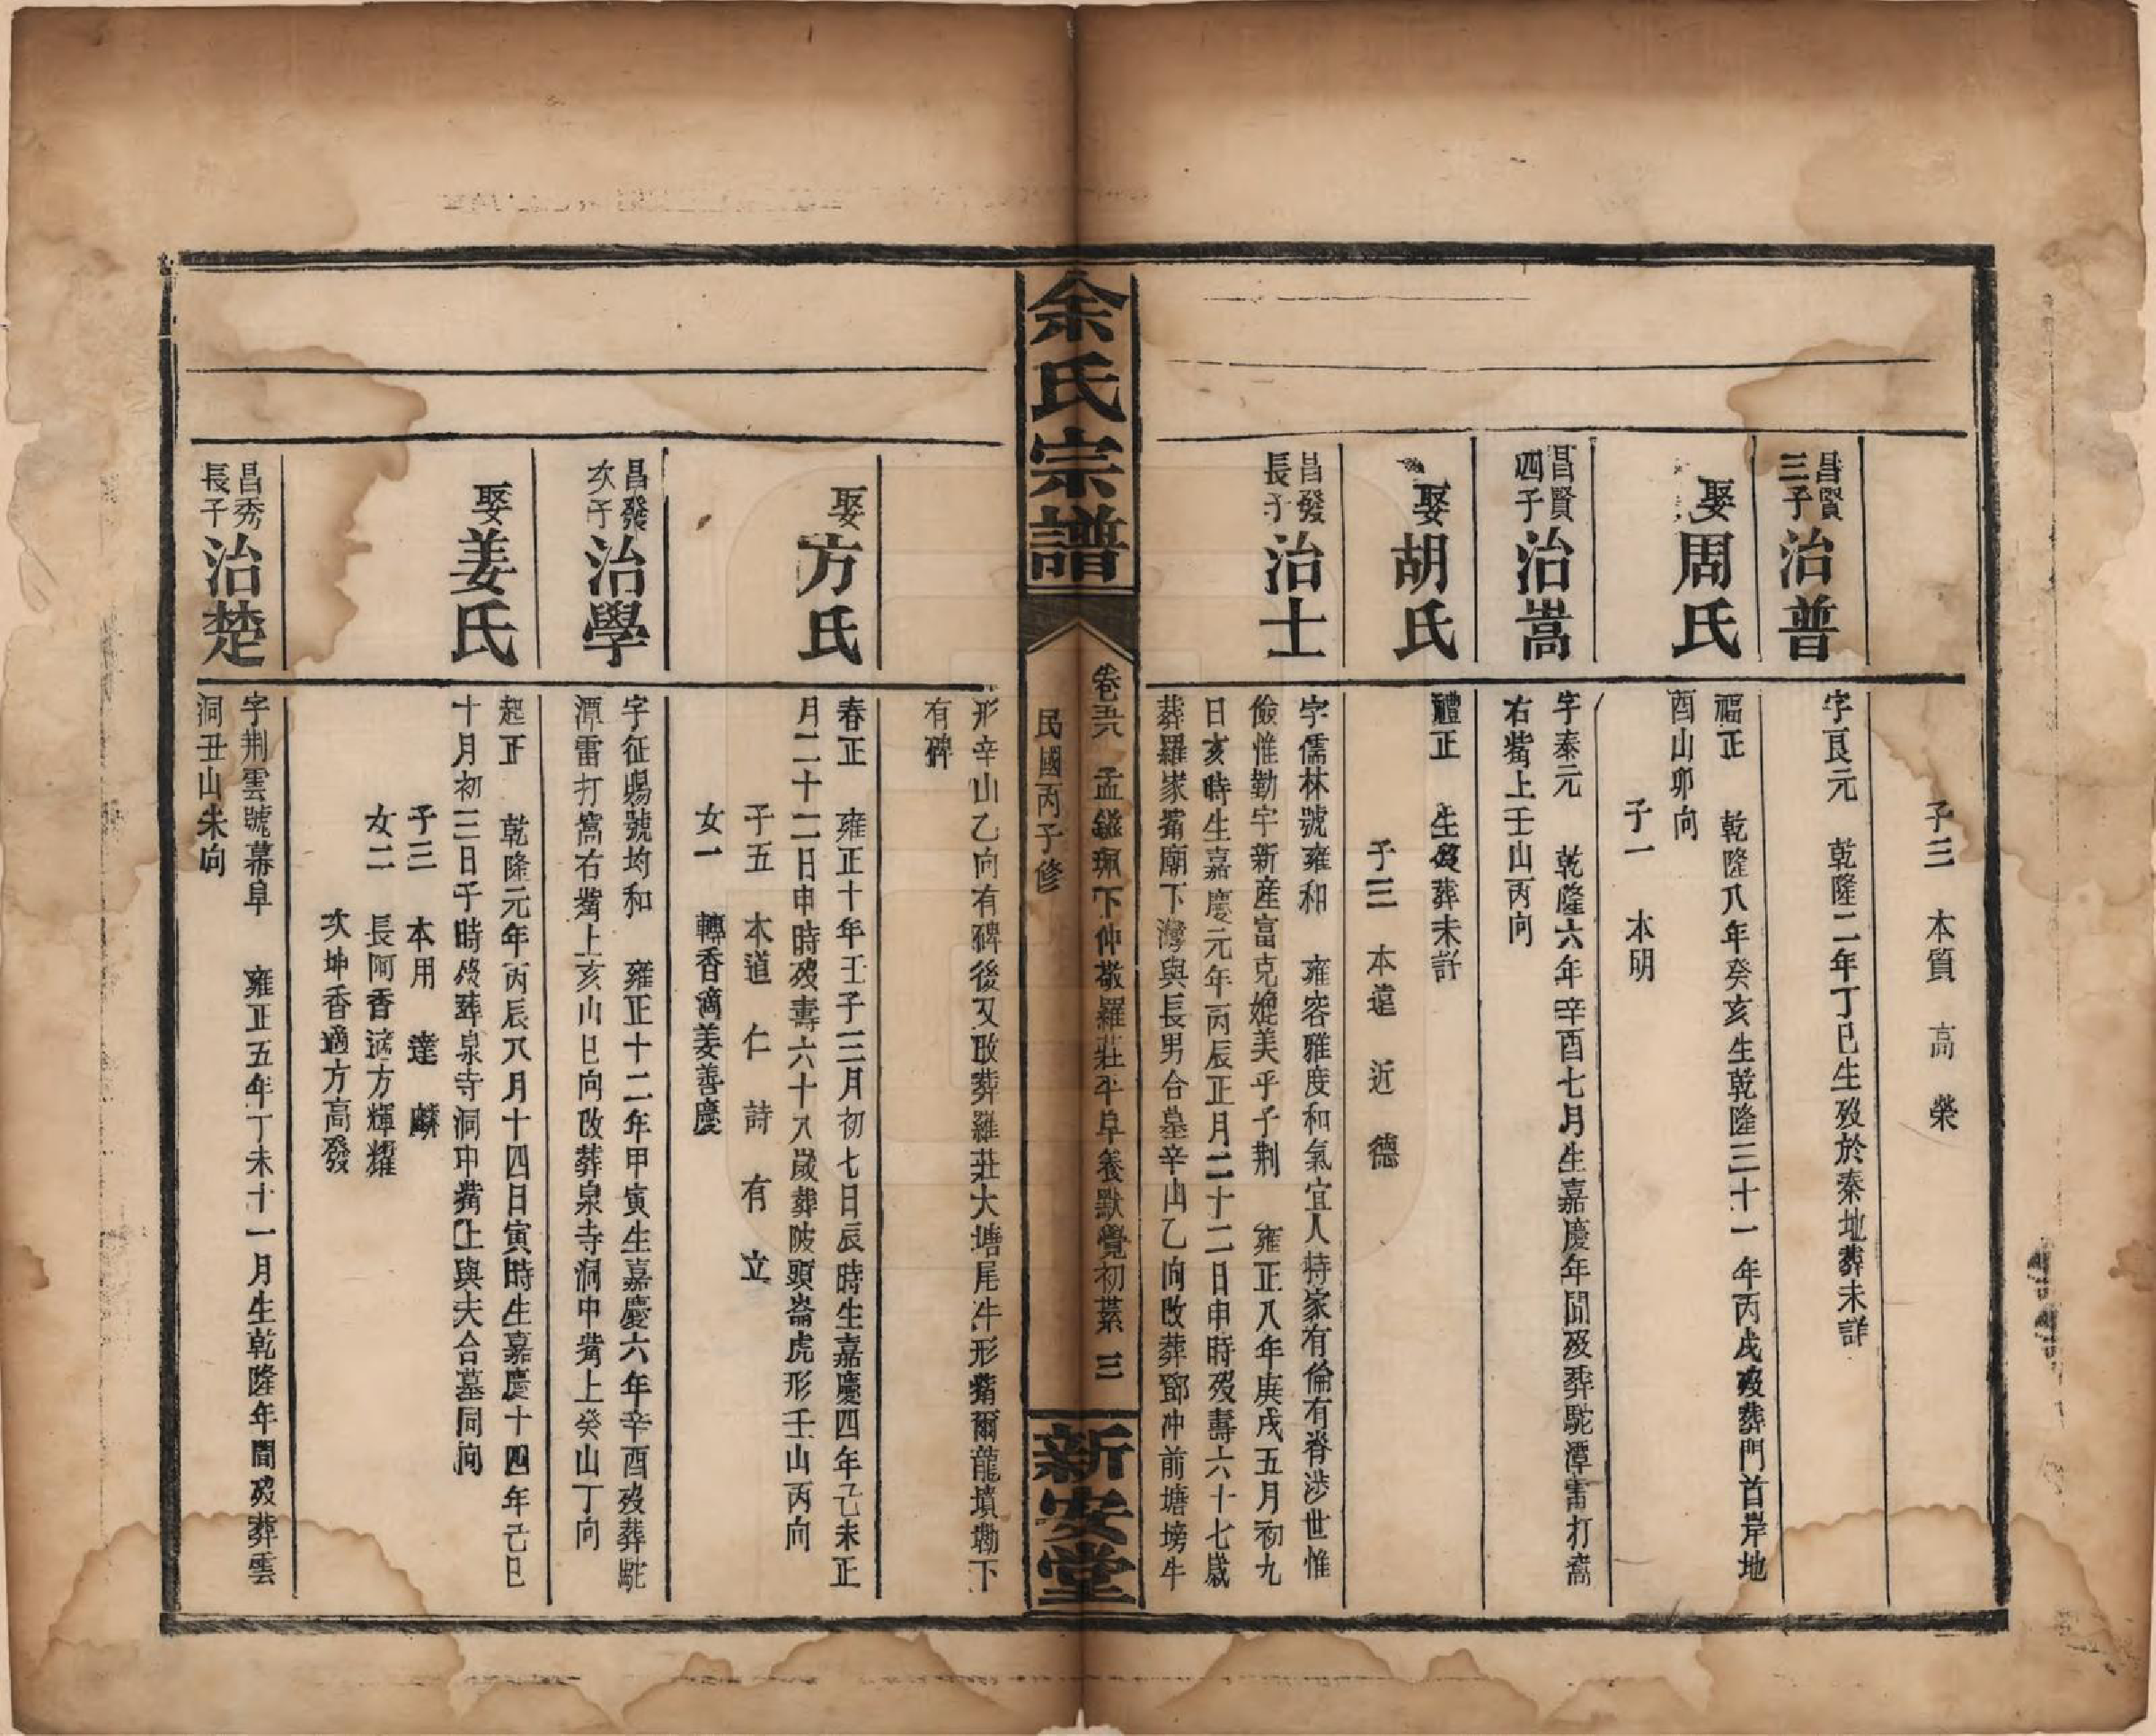 子三　本質　高　榮
昌賢
三子
治普
字良元　乾隆二年丁巳生歿於秦地葬未詳
娶周氏
福正　乾隆八年癸亥生乾隆三十一年丙戌歿葬門首岸地
酉山卯向
子一　本明
昌賢
四子
治嵩
字秦元　乾隆六年辛酉七月生嘉慶年間歿葬駝潭雷打窩
右嘴上壬山丙向
娶胡氏
體正　生歿葬未詳
子三　本遠　近　德
昌發
長子
治士
字儒林號雍和　雍容雅度和氣宜人持家有倫有脊涉世惟
儉惟勤宇新産富克媲美乎子荆　雍正八年庚戌五月初九
日亥時生嘉慶元年丙辰正月二十二日申時歿壽六十七歲
葬羅家嘴廟下灣與長男合墓辛山乙向改葬鄧冲前塘塝牛
余氏宗譜
卷五六　孟鎡珮下仲敬羅莊平阜養默覺初素　三
民國丙子修
新安堂
形辛山乙向有碑後又改葬羅莊大塘尾牛形嘴爾龍墳塝下
有碑
娶方氏
春正　雍正十年壬子三月初七日辰時生嘉慶四年己未正
月二十二日申時歿壽六十八歲葬陂頭崙虎形壬山丙向
子五　本道　仁　詩　有　立
女一　轉香適姜善慶
昌發
次子
治學
字征賜號均和　雍正十二年甲寅生嘉慶六年辛酉歿葬駝
潭雷打窩右嘴上亥山巳向改葬泉寺洞中嘴上癸山丁向
娶姜氏
起正　乾隆元年丙辰八月十四日寅時生嘉慶十四年己巳
十月初三日子時歿葬泉寺洞中嘴上與夫合墓同向
子三　本用　達　麟
女二　長阿香適方輝耀
次坤香適方高發
昌秀
長子
治楚
字荆雲號幕阜　雍正五年丁未十一月生乾隆年間歿葬雲
洞丑山未向